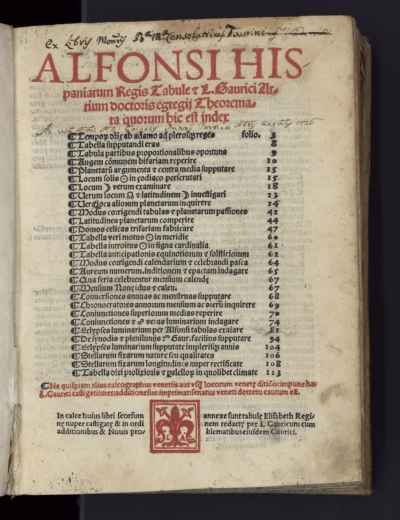 Ex Libris
ALFONSI HIS
paniarum Regis Tabule ⁊ L. Gaurici Ar-
tium doctoris egregij Theorema-
ta quorum hic est index
Tempoꝝ ab adamo ad pleroſqꝫ reges folio. 3
Tabella ſupputandi eras 8
Tabula partibus proportionalibus oportuna 9
Augem cōmunem bifariam reperire 10
Planetarū argumenta ⁊ centra media ſupputare 15
Locum ſolis ☉ in zodiaco perſcrutari 15
Locum ☽ verum examinare 18
Uerum locum ☊ ⁊ latitudinem ☽ inveſtigari 23
Uera loca aliorum planetarum inquirere 24
Modus corrigendi tabulas ⁊ planetarum paſſiones 42
Latitudines planetarum comperire 44
Domos celicas trifariam fabricare 47
Tabella veri motus ☉ in meridie 60
Tabella introitus ☉ in ſigna cardinalia 61
Tabella anticipationis equinoctiorum ⁊ ſolſticiorum 62
Modus corrigendi calendarium ⁊ celebrandi paſca 64
Aureum numerum. Inditionem ⁊ epactam indagare 65
Qua feria celebrentur menſium calende 67
Menſium ⁊ calen. 67
Coniunctiones annuas ac menſtruas ſupputare 68
Chronocratores annorum menſium ac dierū inquirere 69
Coniunctiones ſuperiorum medias reperire 70
Coniunctiones ⁊ ☍ veras luminarium indagare 74
Eclypſes luminarium per Alfonſi tabulas exalare 81
De ſynodis ⁊ plenilunijs Gaur. facilius ſupputare 94
Eclypſes luminarium ſupputare impleriſqꝫ annis 104
Stellarum fixarum nature ſeu qualitates 106
Stellarum fixarum longitudinis nuper rectificate 108
Tabella ⁊ in quolibet climate 123
Ne quiſpiam alius calcographus venetiis aut vſqꝫ locorum venetę ditiōis: impune has
L. Gaurici caſtigationes: additioneſue imprimat: ſenatus veneti decreto cautum eſt.
In calce huius libri ſeorſum
ne nuper caſtigate & in ordi
additionibus & Nouis pro-
L A
annexe ſunt tabulę Eliſabeth Regi-
nem redactę per L. Gauricum cum
blematibus eiuſdem Gaurici.